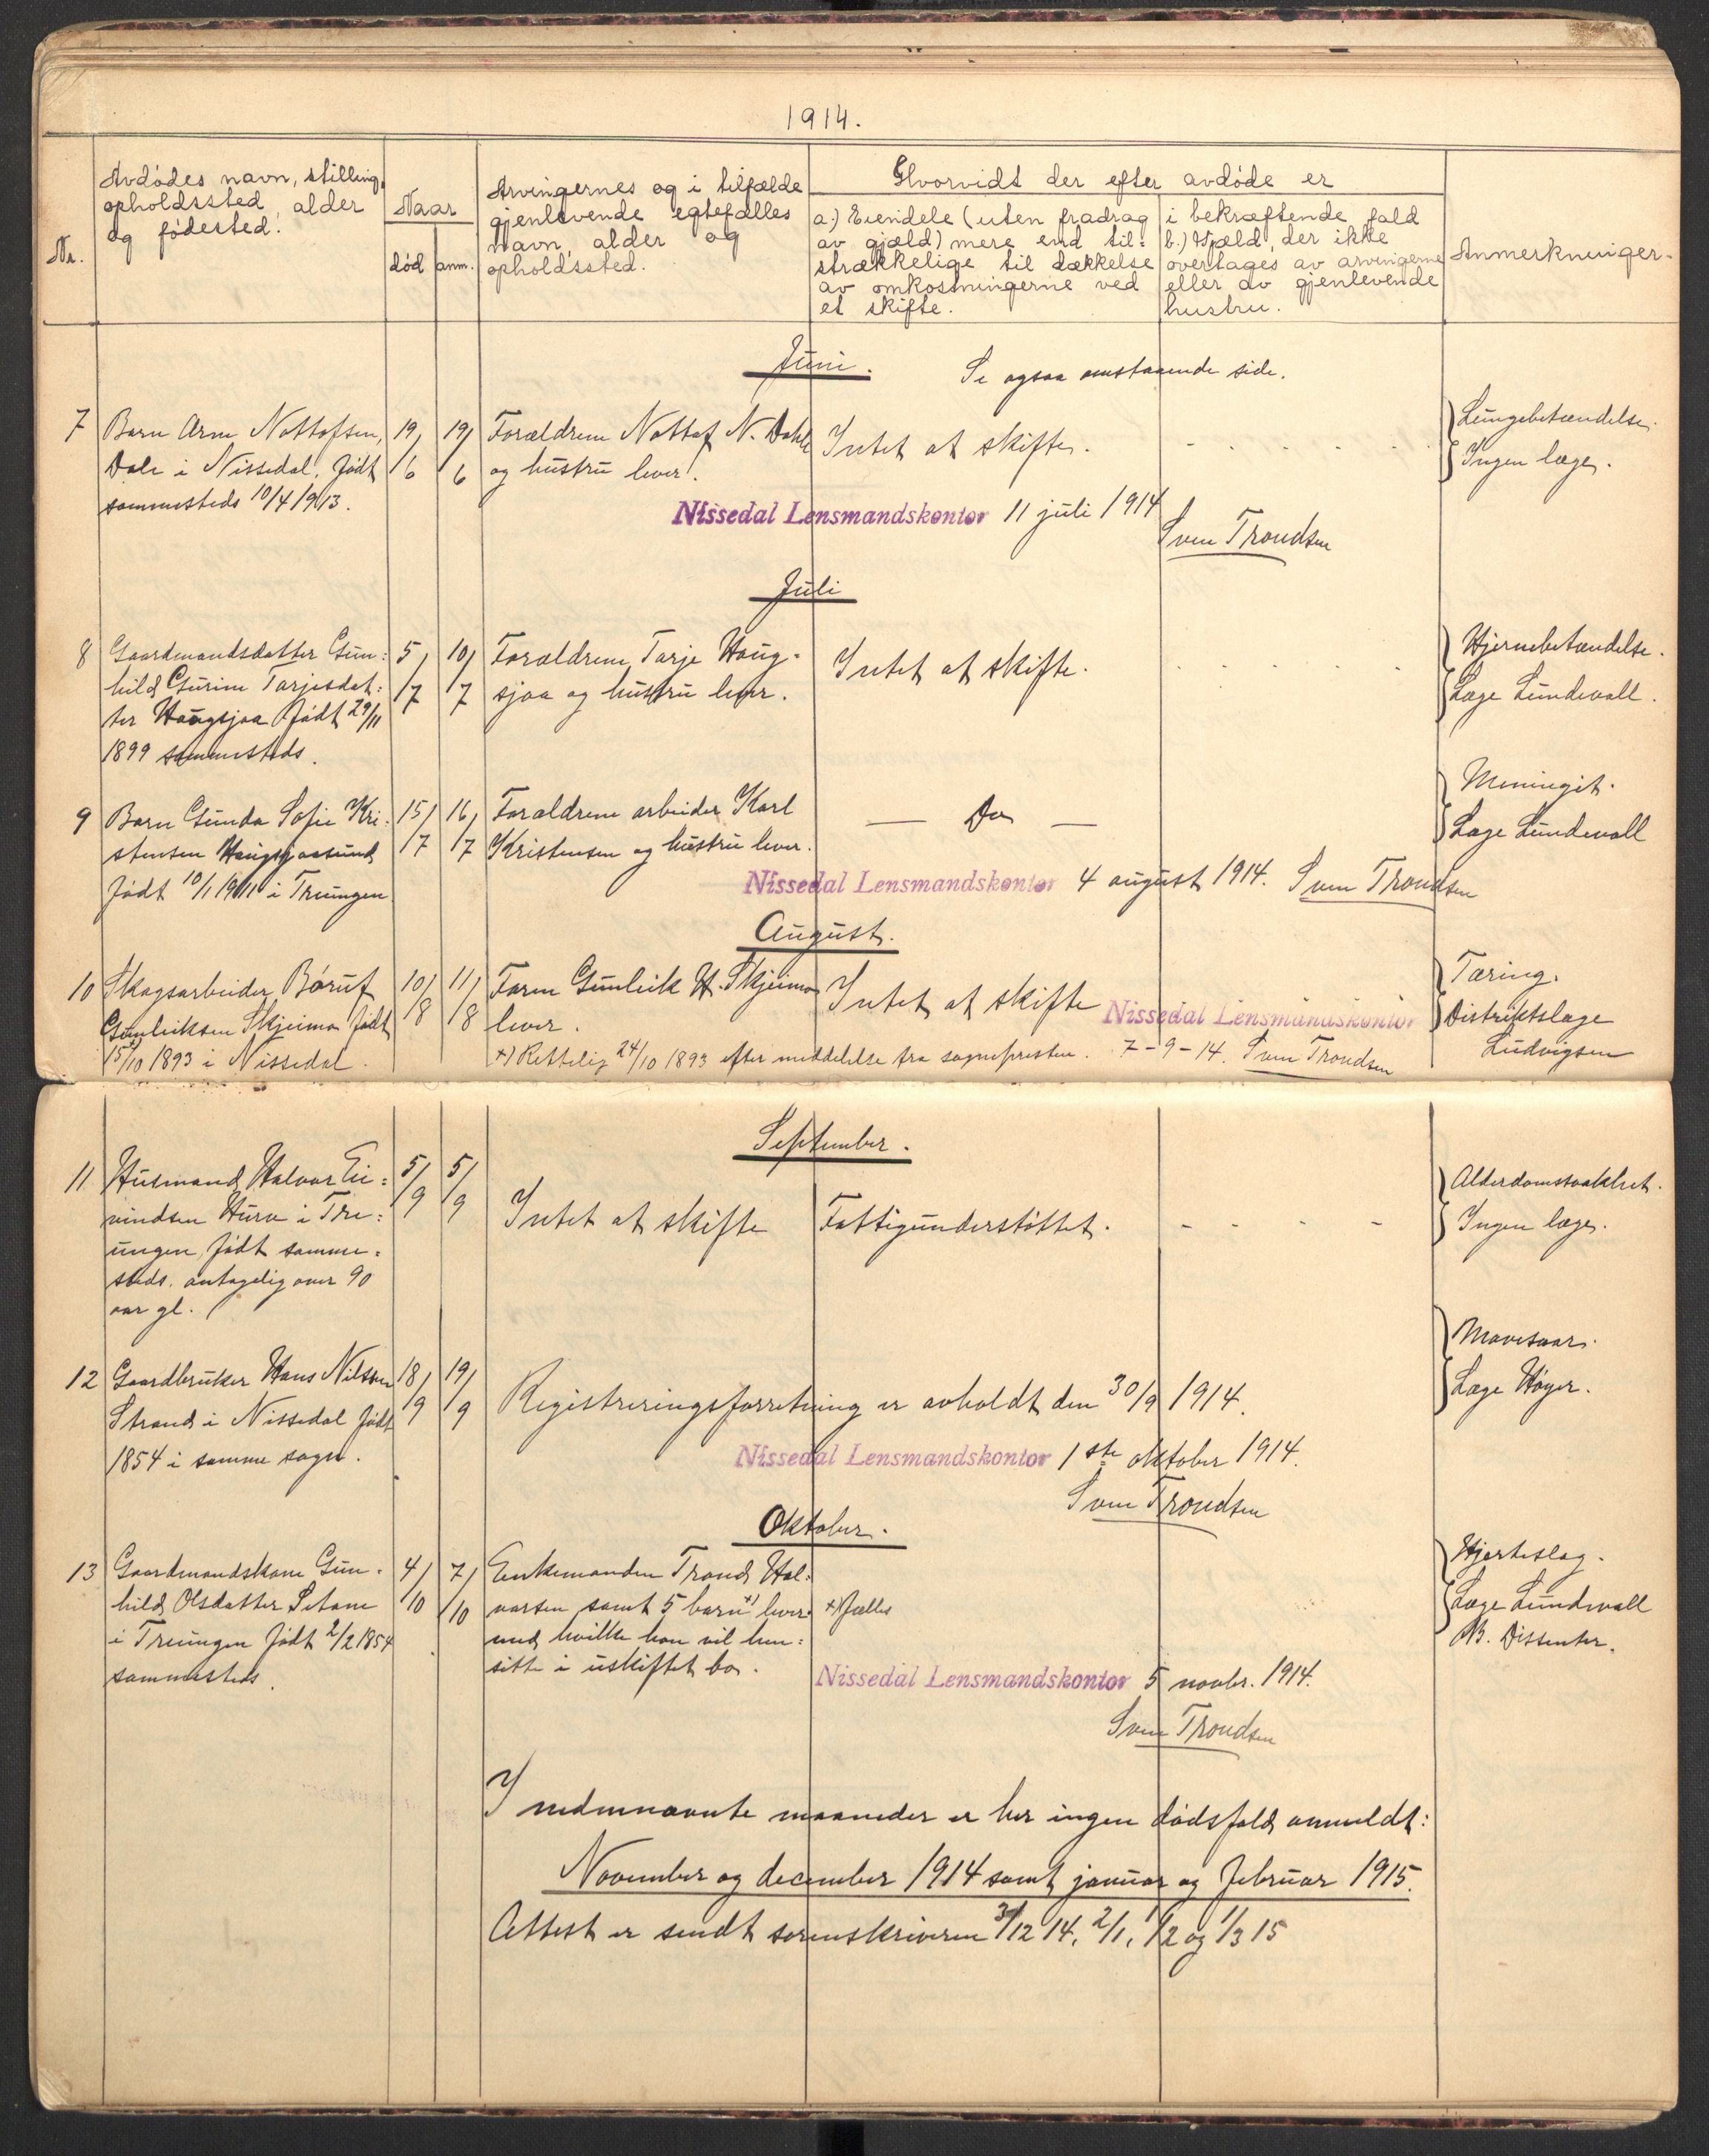 1914.
Nr.
Avdødes navn, stilling,
opholdssted, alder
og fødested.
Naar
død anm.
Arvingernes og i tilfælde
gjenlevende egtefælles
navn, alder og
opholdssted.
Hvorvidt der efter avdøde er
a.) Eiendele (uten fradrag
av gjæld) mere end til=
strækkelige til dækkelse
av omkostningerne ved
et skifte.
i bekræftende fald
b.) Gjæld, der ikke
overtages av arvingerne
eller av gjenlevende
hustru.
Anmerkninger.
Juni. Se ogsaa omstaaende side.
7 Barn Arne Nottofsen,
Dale i Nissedal, født
sammesteds 10/4 1913.
19/6 19/6
Forældrene Nottof N. Dahl
og hustru lever.
Intet at skifte.
Lungebetændelse.
Ingen læge.
Nissedal Lensmandskontor 11 juli 1914
Sven Trondsen
Juli
8 Gaardmandsdatter Gun=
hild Gurine Tarjesdat=
ter Haugsjaa født 29/11
1899 sammesteds.
5/7 10/7
Forældrene Tarje Haug-
sjaa og hustru lever.
Intet at skifte.
Hjernebetændelse.
Læge Lundevall.
9 Barn Gunda Sofie Kri=
stensen Haugsjaasund
født 10/1 1911 i Treungen
15/7 16/7
Forældrene arbeider Karl
Kristensen og hustru lever.
— Do —
Meningit.
Læge Lundevall
Nissedal Lensmandskontor 4 august 1914. Sven Trondsen
August.
10 Skogsarbeider Børuf
Gunleiksen Skjeimo født
15/10 1893 i Nissedal.
10/8 11/8
Faren Gunleik H. Skjeimo
lever.
Intet at skifte
Tæring.
Distriktslæge
Ludvigsen
Nissedal Lensmandskontor
x) Rettelig 24/10 1893 efter meddelelse fra sognepresten. 7-9-14. Sven Trondsen
September.
11 Husmand Halvor Ei=
vindsen Hura i Tre=
ungen, født samme=
steds. antagelig over 90
aar gl.
5/9 5/9
Intet at skifte Fattigunderstøttet.
Alderdomssvakhet.
Ingen læge.
12 Gaardbruker Hans Nilssen
Strand i Nissedal født
1854 i samme sogn.
18/9 19/9
Registreringsforretning er avholdt den 30/9 1914.
Mavesaar.
Læge Høyer.
Nissedal Lensmandskontor 1ste oktober 1914.
Sven Trondsen
Oktober.
13 Gaardmandskone Gun-
hild Olsdatter Setane
i Treungen født 2/2 1854
sammesteds.
4/10 7/10
Enkemanden Trond Hal=
vorsen samt 5 barn x) lever
med hvilke han vil hen=
sitte i uskiftet bo.
x) fælles
Hjerteslag.
Læge Lundevall
NB. Dissenter.
Nissedal Lensmandskontor 5 novbr. 1914.
Sven Trondsen
I nedennævnte maaneder er her ingen dødsfald anmeldt:
November og december 1914 samt januar og februar 1915.
Attest er sendt sorenskriveren 3/12 14, 2/1, 1/2 og 1/3 15